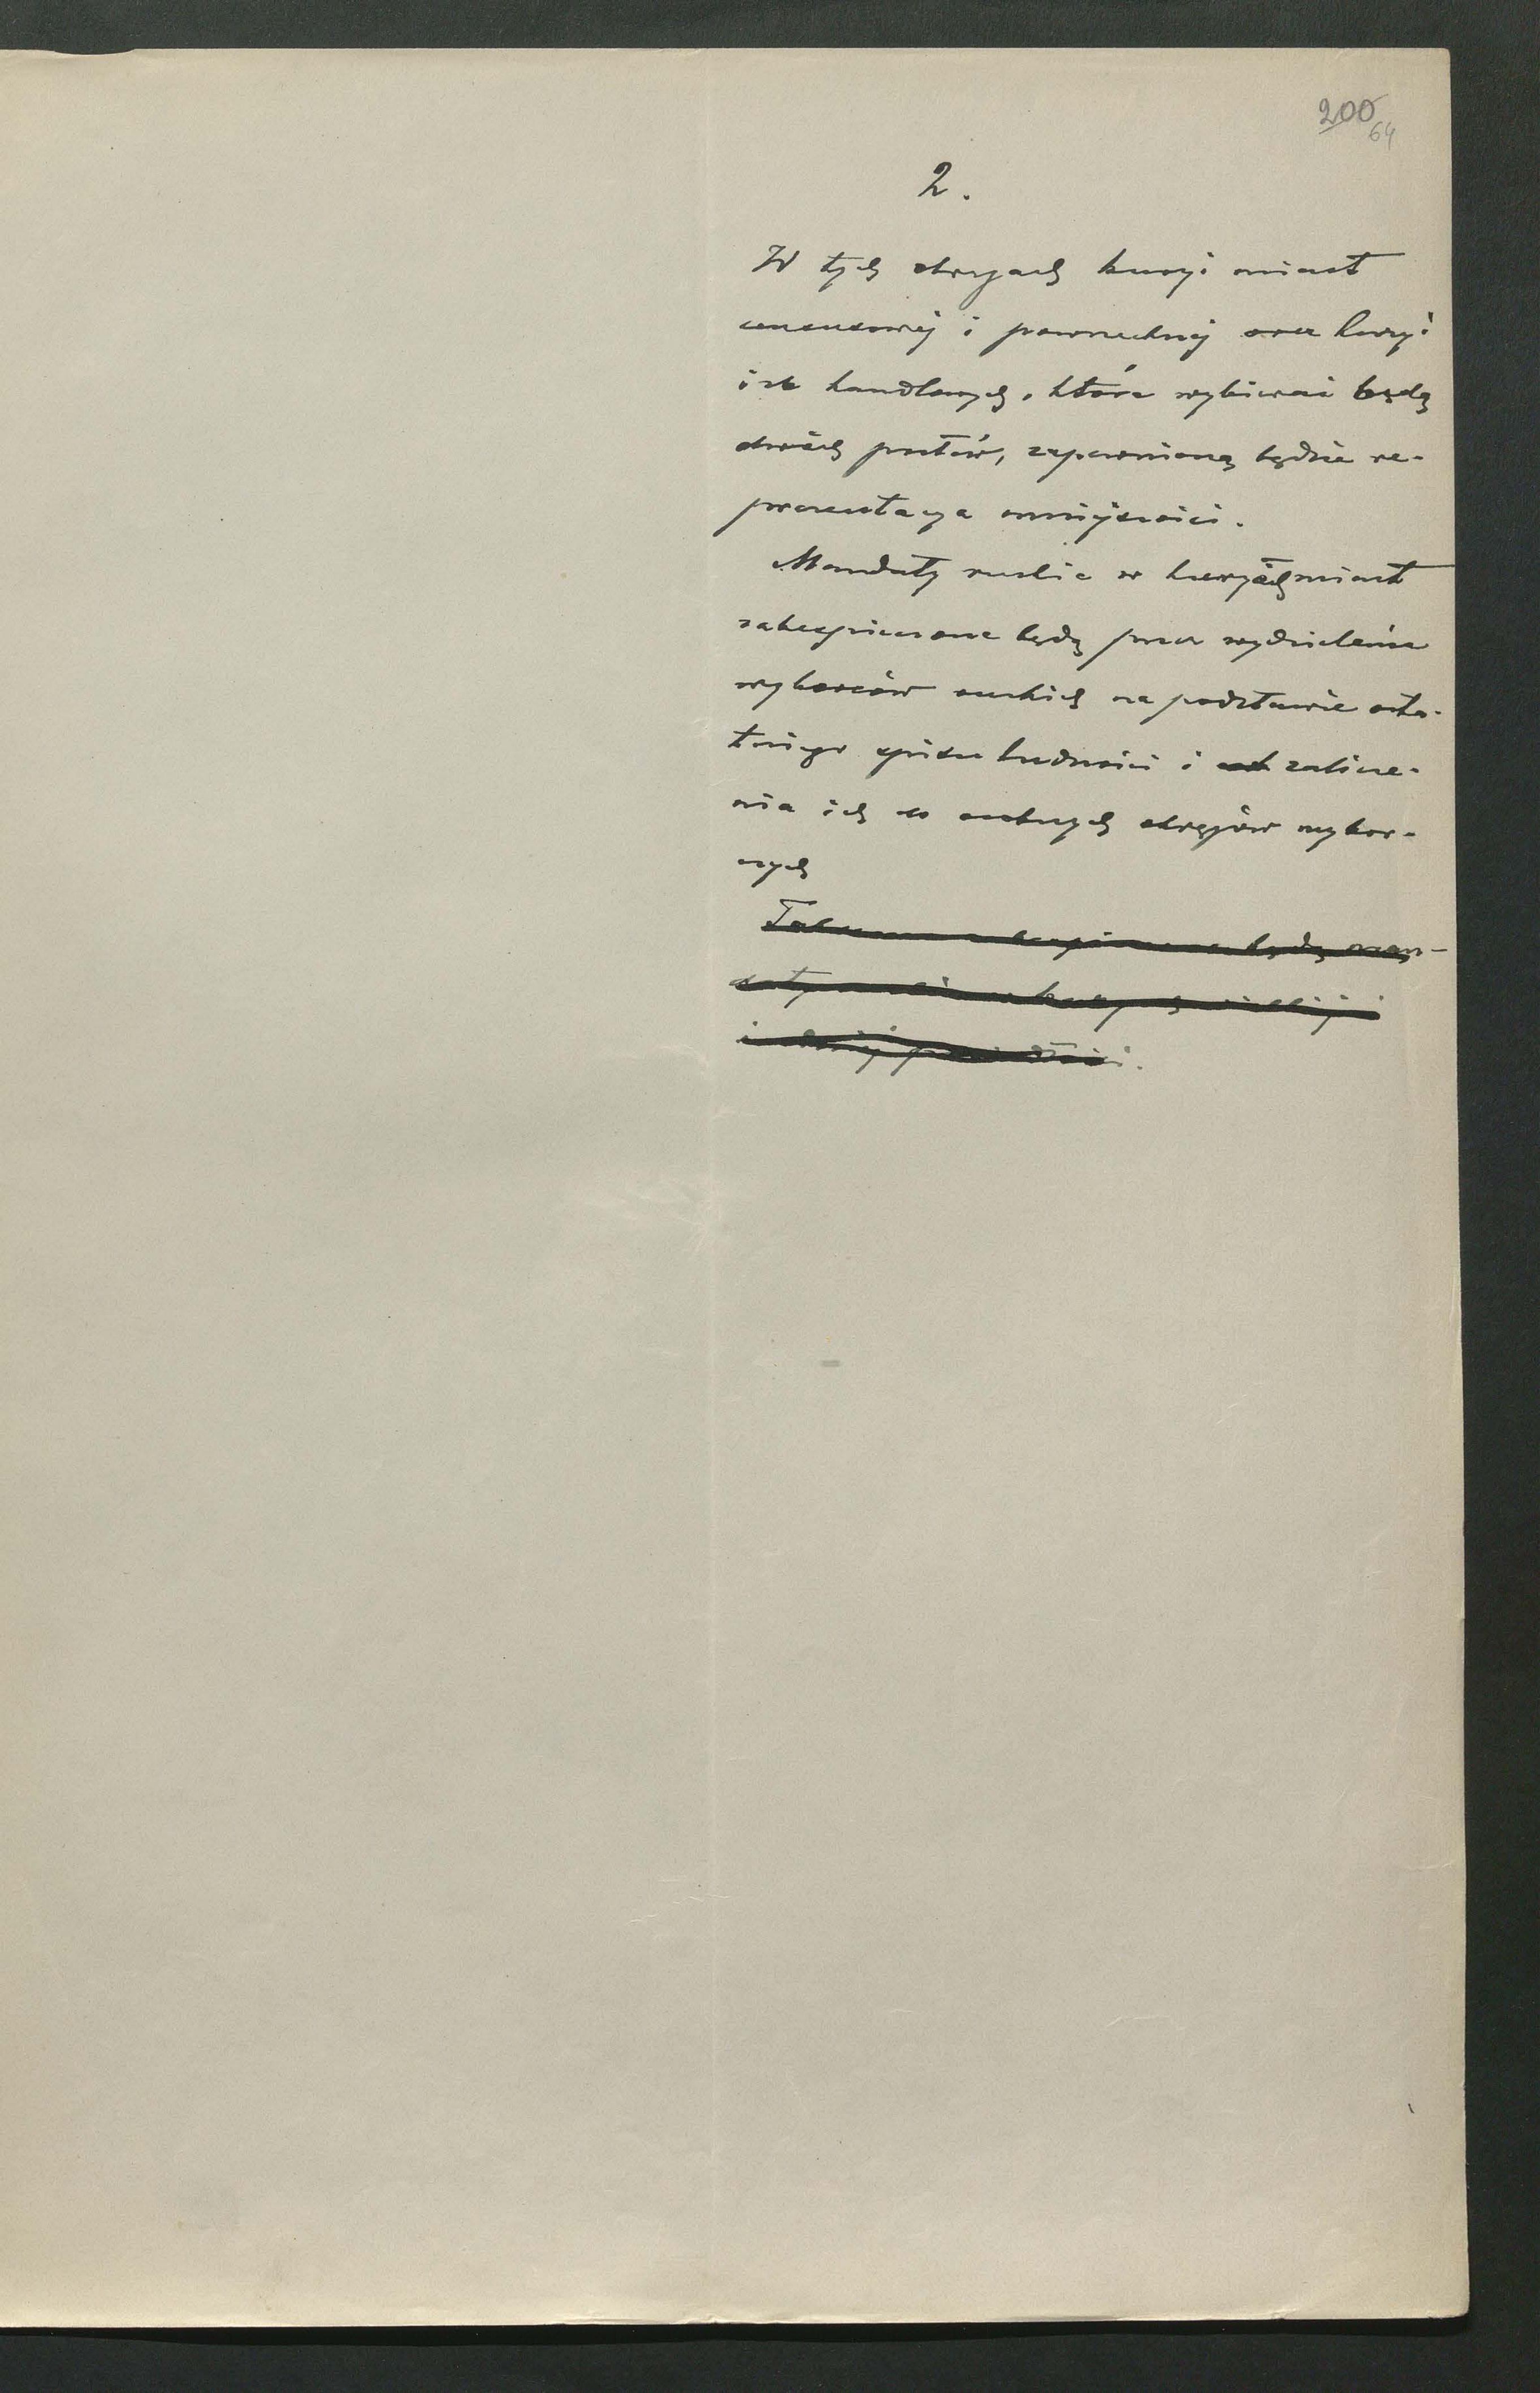 200
64
2.
W tych okręgach kuryi miast
censusowej i powszechnej oraz kuryi
izb handlowych, które wybierać będą
dwóch posłów, zapewnioną będzie re-
prezentacya mniejszości.
Mandaty ruskie w kuryach miast
zabezpieczone będą przez wydzielenie
wyborców ruskich na podstawie osta-
tniego spisu ludności i zalicze-
nia ich do osobnych okręgów wybor-
czych
będą man-
daty
i